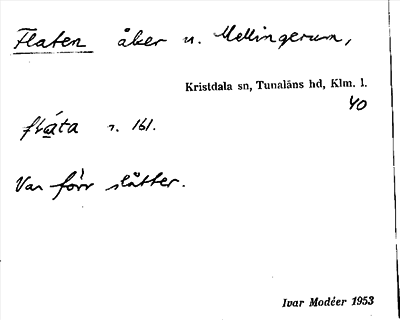 Flaten åker u. Mellingerum,
Kristdala sn, Tunaläns hd, Klm. l.
40
flata s. 161.
Var förr slåtter.
Ivar Modéer 1953